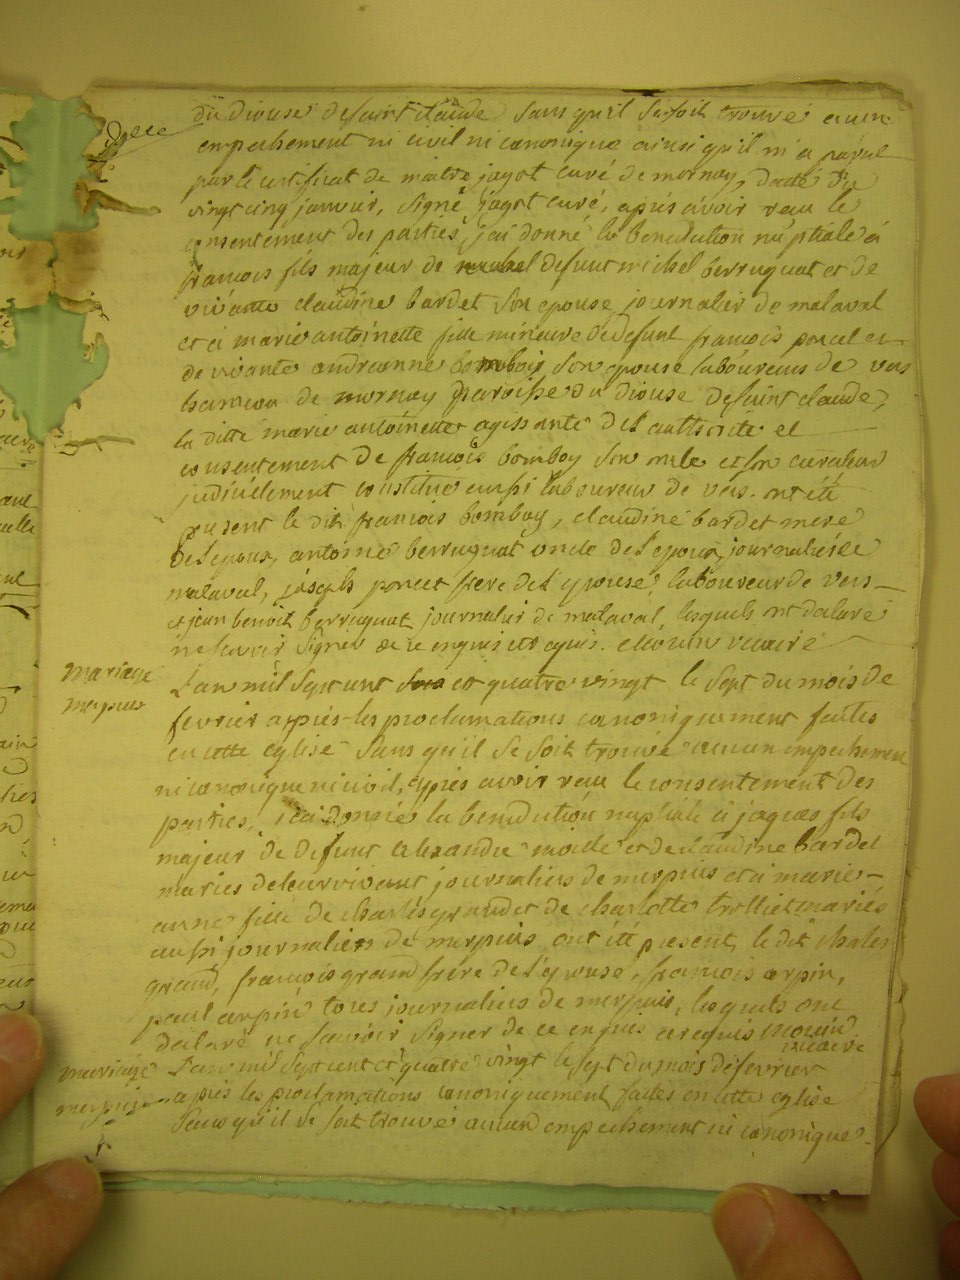 du diouse de saint claude sans qu'il se soit trouvé aucun
empechement ni civil ni canonique ainsi qu'il m'a parut
par le certificat de maitre jagot curé de mornay, daté du
vingt cinq janvier, signé jagot curé, apiés avoir reau le
consentement des parties j'ai donné la benediction nuptiale a
francois fils majeur de defunt michel berruquat et de
vivante claudine bardet son epouse journalier de malaval
et a marie antoinette fille mineure de defunt francois poncet et
de vivante andreanne bomboy son epouse laboureurs de vers
hameau de mornay paroisse du diouse de saint claude,
la ditte marie antoinette agissante de l'authorité et
consentement de francois bomboy son oncle et son curateur
judiciélement constitué aussi laboureur de vers. ont été
present le dit francois bomboy, claudine bardet mere
de l'epoux, antoine berruquat oncle de l'epoux journalier de
malaval, joseph poncet frere de l'epouse, laboureur de vers
et jean benoit berruquat journalier de malaval, lesquels ont declaré
ne savoir signer de ce enquis et requis. vicaire
mariage
merpuis
L'an mil sept cent et quatre vingt le sept du mois de
fevrier appiés les proclamations canoniquement faites
en cette eglise sans qu'il se soit trouvé aucun empechement
ni canonique ni civil, appiés avoir reau le consentement des
parties, j'ai donné la benediction nuptiale a jaques fils
majeur de defunt alexandre et de claudine bardet
mariés de leur vivant journaliers de merpuis et a marie
anne fille de charles grand et de charlotte trolliet mariés
aussi journaliers de merpuis ont été present, le dit charles
grand, francois grand frére de l'epouse, francois arpin,
paul arpin tous journaliers de merpuis, lesquels ont
declaré ne savoir signer de ce enquis et requis
vicaire
mariage
merpuis
L'an mil sept cent et quatre vingt le sept du mois de fevrier
apiés les proclamations canoniquement faites en cette eglise
sans qu'il se soit trouvé aucun empechement ni canonique